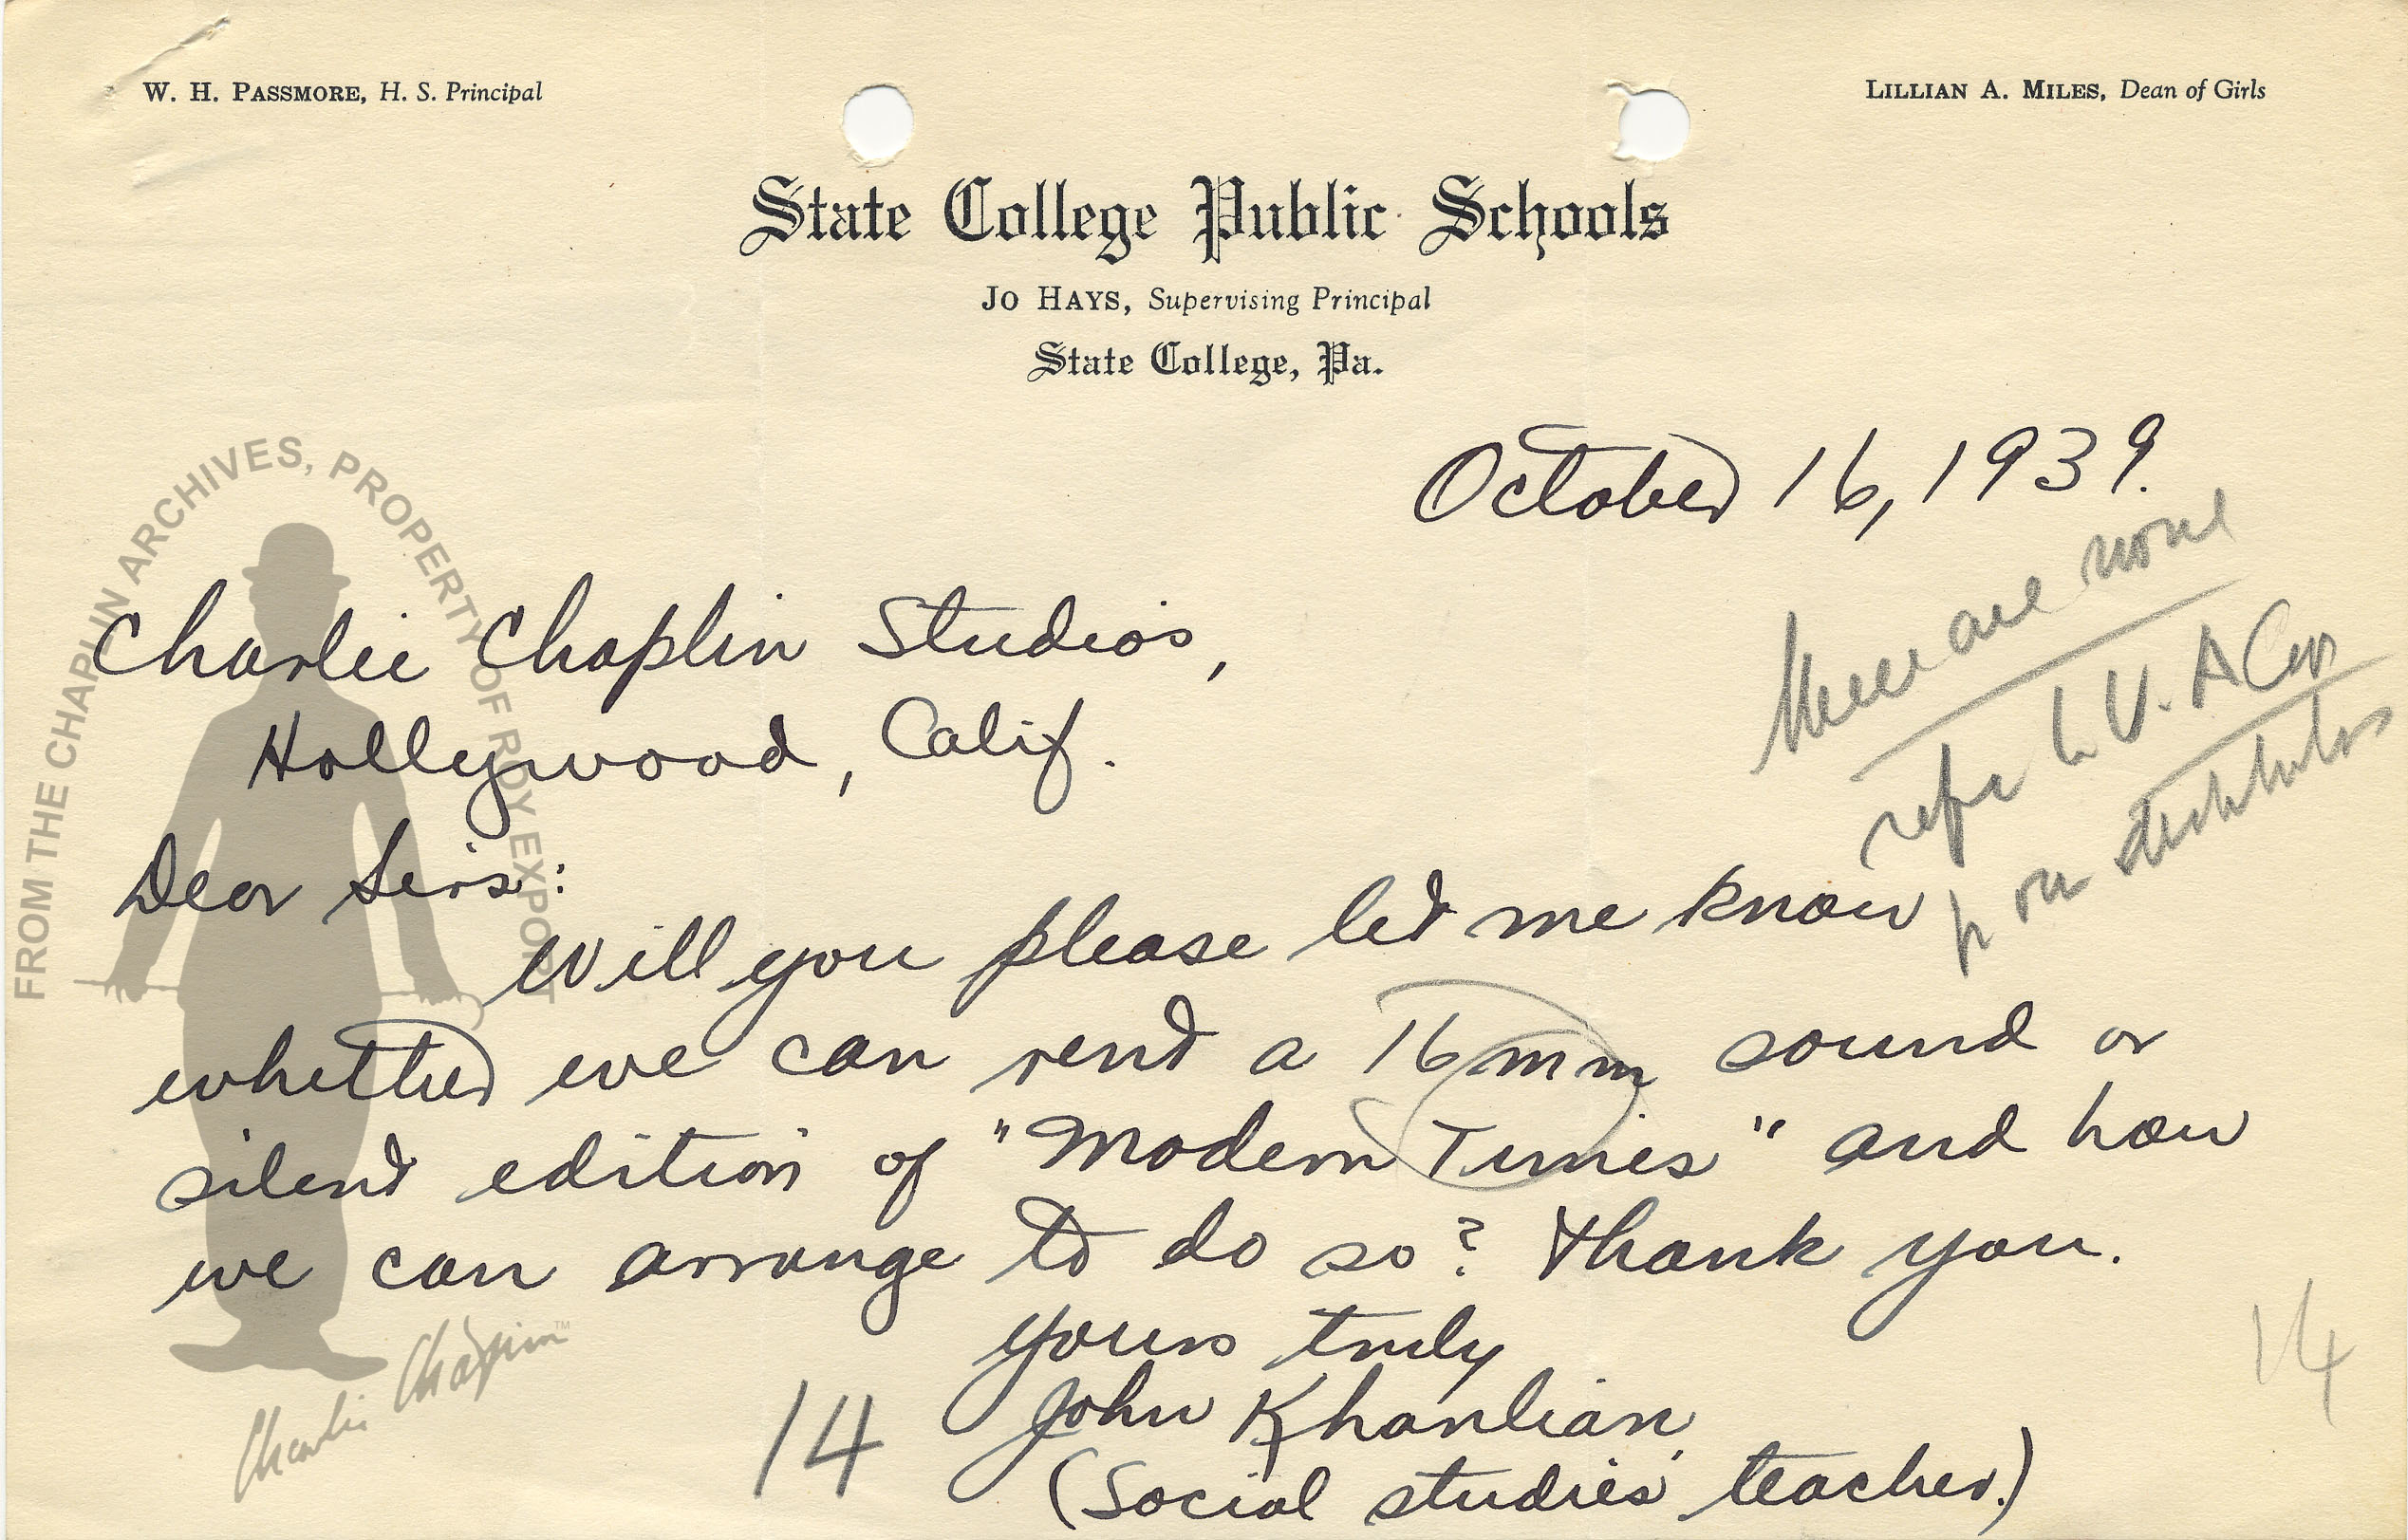 W. H. PASSMORE, H. S. Principal
LILLIAN A. MILES, Dean of Girls
State College Public Schools
JO HAYS, Supervising Principal
State College, Pa.
October 16, 1939.
there are none
refer to U. A Corp
our distributors
Charlie Chaplin Studios,
Hollywood, Calif.
Dear Sirs:
Will you please let me know
whether we can rent a 16 mm sound or
silent edition of "Modern Times" and how
we can arrange to do so? Thank you.
Yours truly
John Khanlian,
(Social studies teacher.)
14
14
FROM THE CHAPLIN ARCHIVES, PROPERTY OF ROY EXPORT
Charlie Chaplin™